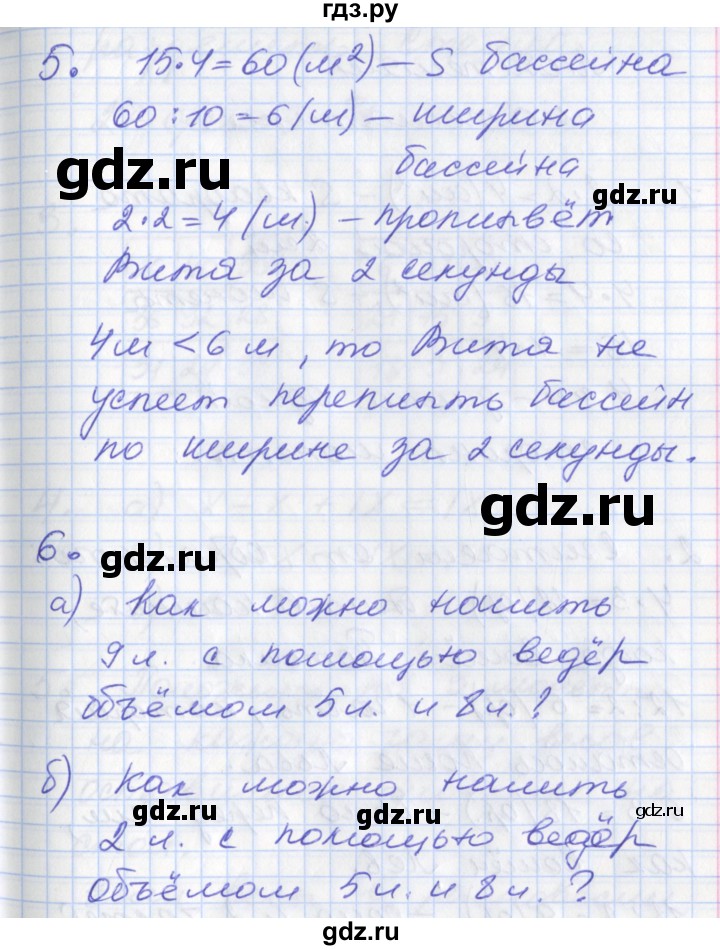 гдз.ру
5. 15·4=60(м²)– S бассейна
60:10=6(м)– ширина
бассейна
gdz.ru
gdz.ru
2·2=4(м.) – проплывёт
Витя за 2 секунды
4м <6 м, то Витя не
успеет переплыть бассейн
по ширине за 2 секунды.
gdz.ru
6.
gdz.ru
а) Как можно налить
9л. с помощью ведёр
объёмом 5л. и 8л.?
б) Как можно налить
gdz.ru
gdz.ru
2 л. с помощью ведёр
объёмом 5л. и 8л.?
gdz.ru